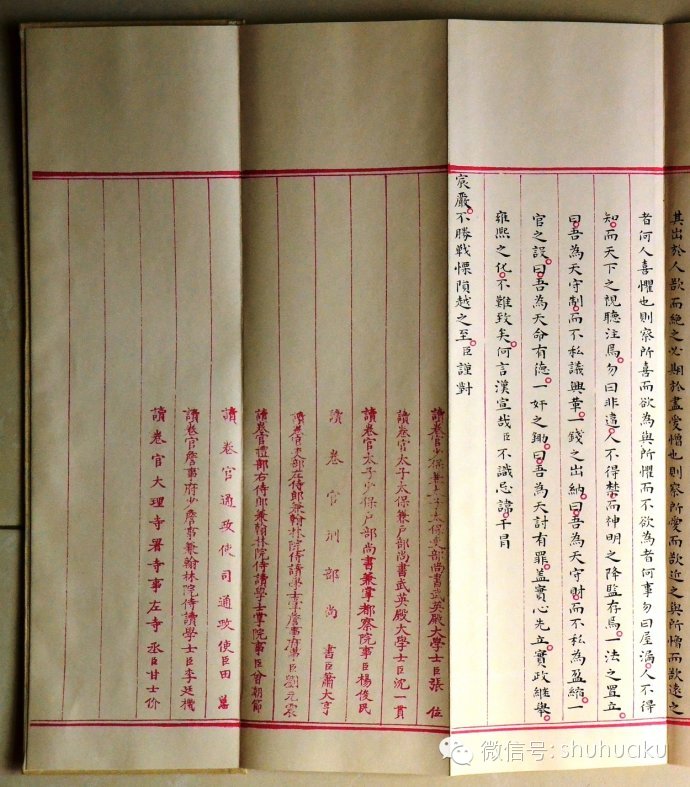 其出於人欲而絕之必期於盡愛憎也則察所愛而欲近之與所憎而欲遠之
者何人喜懼也則察所喜而欲為與所懼而不欲為者何事勿曰屋漏人不得
知而天下之視聽注焉勿曰非違人不得禁而神明之降監存焉一法之置立
曰吾為天守制而不私議興革一錢之出納曰吾為天守財而不私為盈縮一
官之設曰吾為天命有德一奸之鋤曰吾為天討有罪蓋實心先立實政繼舉
雍熙之化不難致矣何言漢宣哉臣不識忌諱干冒
宸嚴不勝戰慄隕越之至臣謹對
讀卷官少保兼太子太保吏部尚書武英殿大學士臣張位
讀卷官太子太保兼戶部尚書武英殿大學士臣沈一貫
讀卷官太子少保戶部尚書兼掌都察院事臣楊俊民
讀卷官刑部尚書臣蕭大亨
讀卷官吏部左侍郎兼翰林院侍讀學士掌詹事府事臣劉元震
讀卷官禮部右侍郎兼翰林院侍讀學士掌院事臣曾朝節
讀卷官通政使司通政使臣田蕙
讀卷官詹事府少詹事兼翰林院侍讀學士臣李廷機
讀卷官大理寺署寺事左寺丞臣甘士价
微信号: shuhuaku